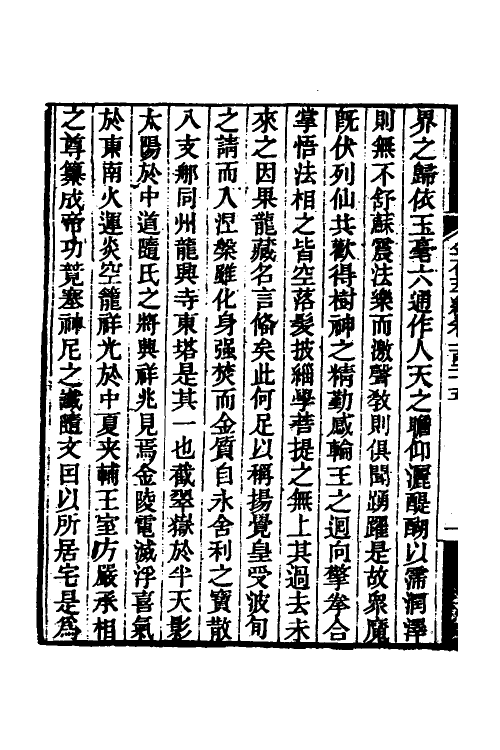 界之歸依玉毫六通作人天之瞻仰灑醍醐以濡潤澤
則無不舒蘇震法樂而激聲教則俱聞踴躍是故衆魔
旣伏列仙共歡得樹神之精勤感輪王之迴向擎拳合
掌悟法相之皆空落髮披緇學菩提之無上其過去未
來之因果龍藏名言偹矣此何足以稱揚覺皇受波旬
之請而入涅槃雖化身强焚而金質自永舍利之寶散
入支郍同州龍興寺東塔是其一也截翠嶽於半天影
太陽於中道隨氏之將興祥兆見焉金陵電滅浮喜氣
於東南火運炎空籠祥光於中夏夹輔王室方嚴承相
之尊纂成帝功竟塞神尼之讖隨文囙以所居宅是爲